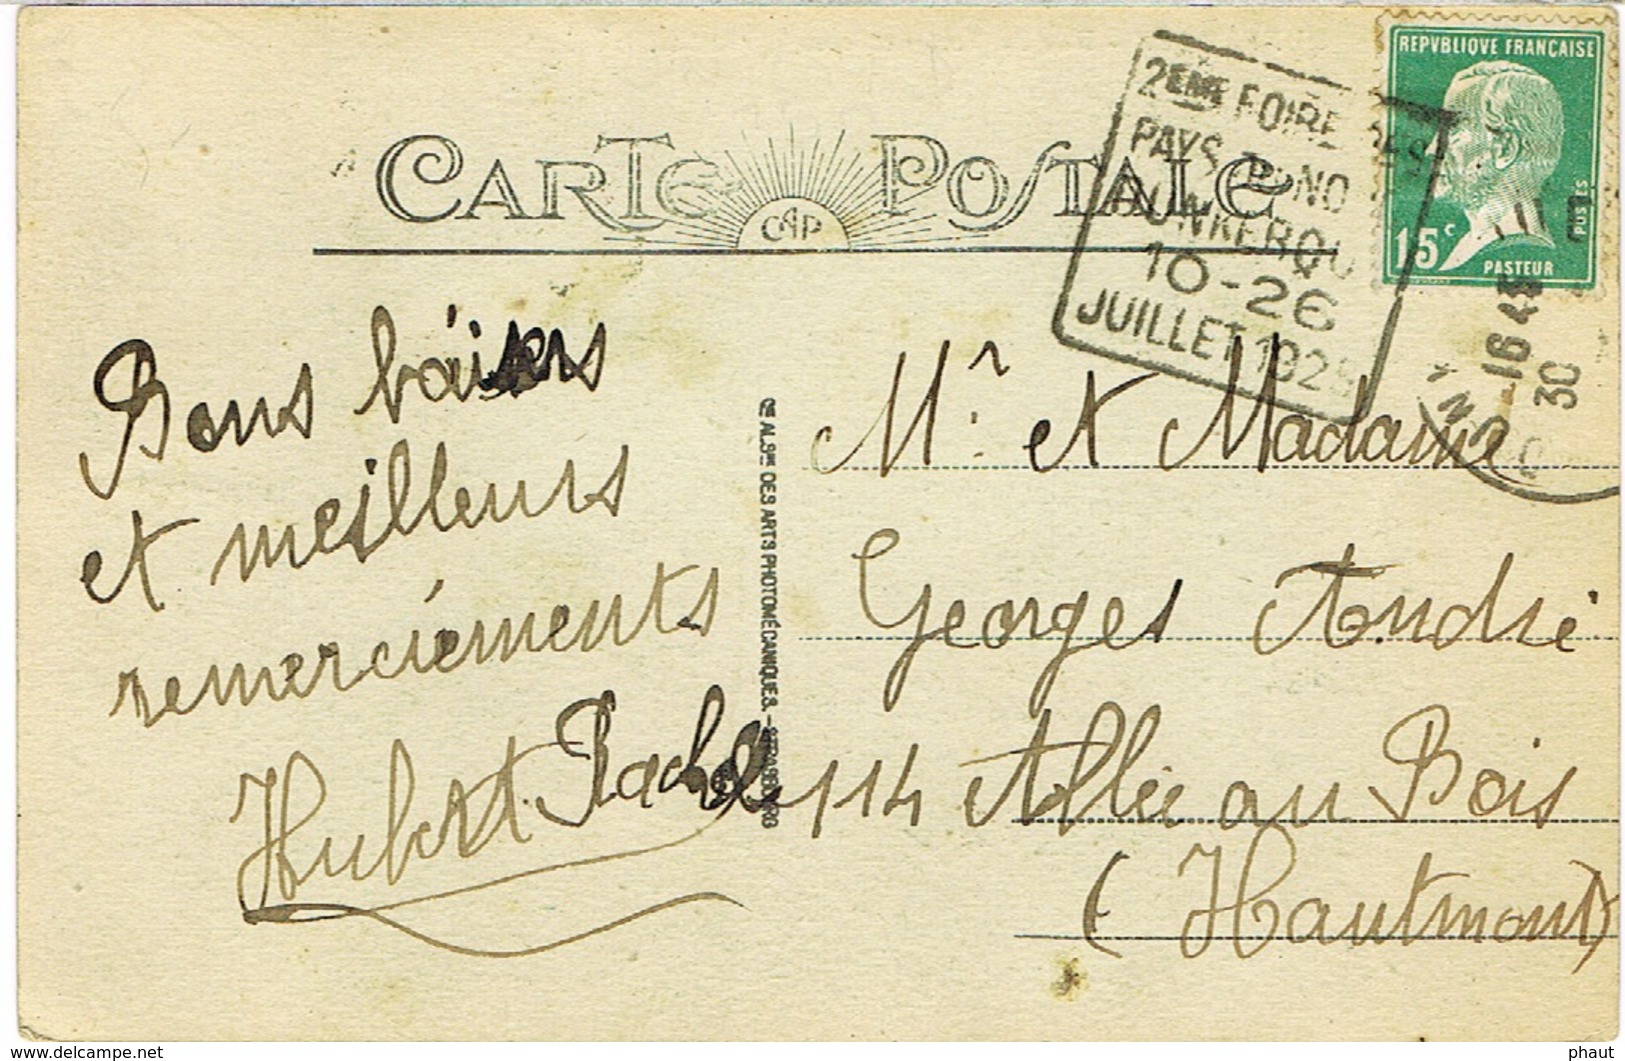 CARTE POSTALE
CAP
2EME FOIRE DES
PAYS DU NO
DUNKERQU
10-26
JUILLET 192
REPVBLIQVE FRANÇAISE
15c
POSTES
PASTEUR
16 45
30
Bons baisers
et meilleurs
remerciéments
Hubert Rachel
CIE ALSNE DES ARTS PHOTOMÉCANIQUES. - STRASBOURG
Mr et Madame
Georges André
114 Allée au Bois
(Hautmont)
www.delcampe.net
phaut